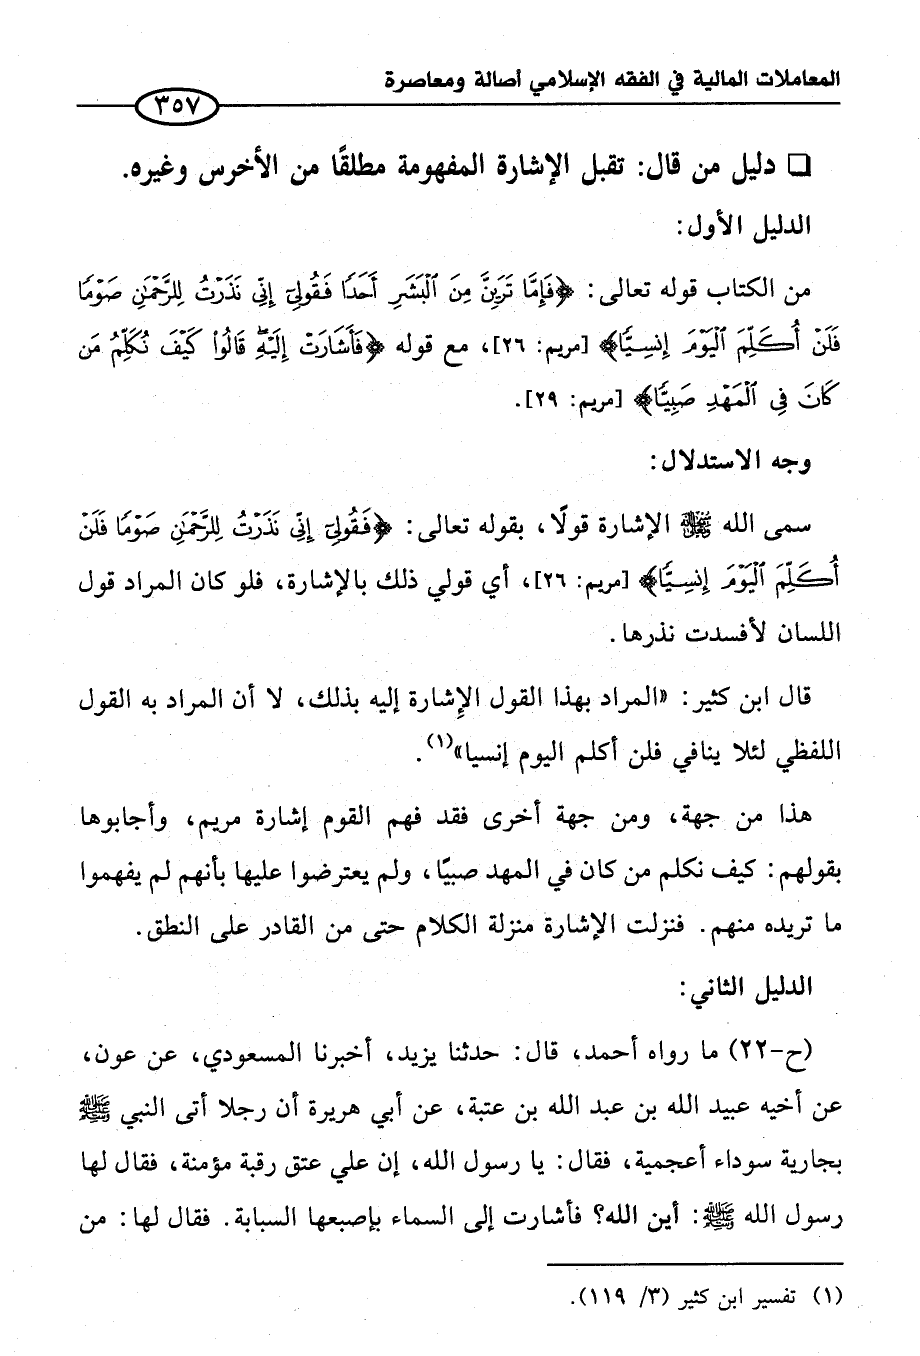 المعاملات المالية في الفقه الإسلامي أصالة ومعاصرة
٣٥٧
❑ دليل من قال: تقبل الإشارة المفهومة مطلقًا من الأخرس وغيره.
الدليل الأول:
من الكتاب قوله تعالى: ﴿فَإِمَّا تَرَيِنَّ مِنَ ٱلْبَشَرِ أَحَدًا فَقُولِىٓ إِنِّى نَذَرْتُ لِلرَّحْمَٰنِ صَوْمًا
فَلَنْ أُكَلِّمَ ٱلْيَوْمَ إِنسِيًّا﴾ [مريم: ٢٦]، مع قوله ﴿فَأَشَارَتْ إِلَيْهِ ۖ قَالُوا۟ كَيْفَ نُكَلِّمُ مَن
كَانَ فِى ٱلْمَهْدِ صَبِيًّا﴾ [مريم: ٢٩].
وجه الاستدلال:
سمى الله ﷻ الإشارة قولًا، بقوله تعالى: ﴿فَقُولِىٓ إِنِّى نَذَرْتُ لِلرَّحْمَٰنِ صَوْمًا فَلَنْ
أُكَلِّمَ ٱلْيَوْمَ إِنسِيًّا﴾ [مريم: ٢٦]، أي قولي ذلك بالإشارة، فلو كان المراد قول
اللسان لأفسدت نذرها.
قال ابن كثير: «المراد بهذا القول الإشارة إليه بذلك، لا أن المراد به القول
اللفظي لئلا ينافي فلن أكلم اليوم إنسيا»(١).
هذا من جهة، ومن جهة أخرى فقد فهم القوم إشارة مريم، وأجابوها
بقولهم: كيف نكلم من كان في المهد صبيًا، ولم يعترضوا عليها بأنهم لم يفهموا
ما تريده منهم. فنزلت الإشارة منزلة الكلام حتى من القادر على النطق.
الدليل الثاني:
(ح-٢٢) ما رواه أحمد، قال: حدثنا يزيد، أخبرنا المسعودي، عن عون،
عن أخيه عبيد الله بن عبد الله بن عتبة، عن أبي هريرة أن رجلا أتى النبي ﷺ
بجارية سوداء أعجمية، فقال: يا رسول الله، إن علي عتق رقبة مؤمنة، فقال لها
رسول الله ﷺ: أين الله؟ فأشارت إلى السماء بإصبعها السبابة. فقال لها: من
(١) تفسير ابن كثير (٣/ ١١٩).